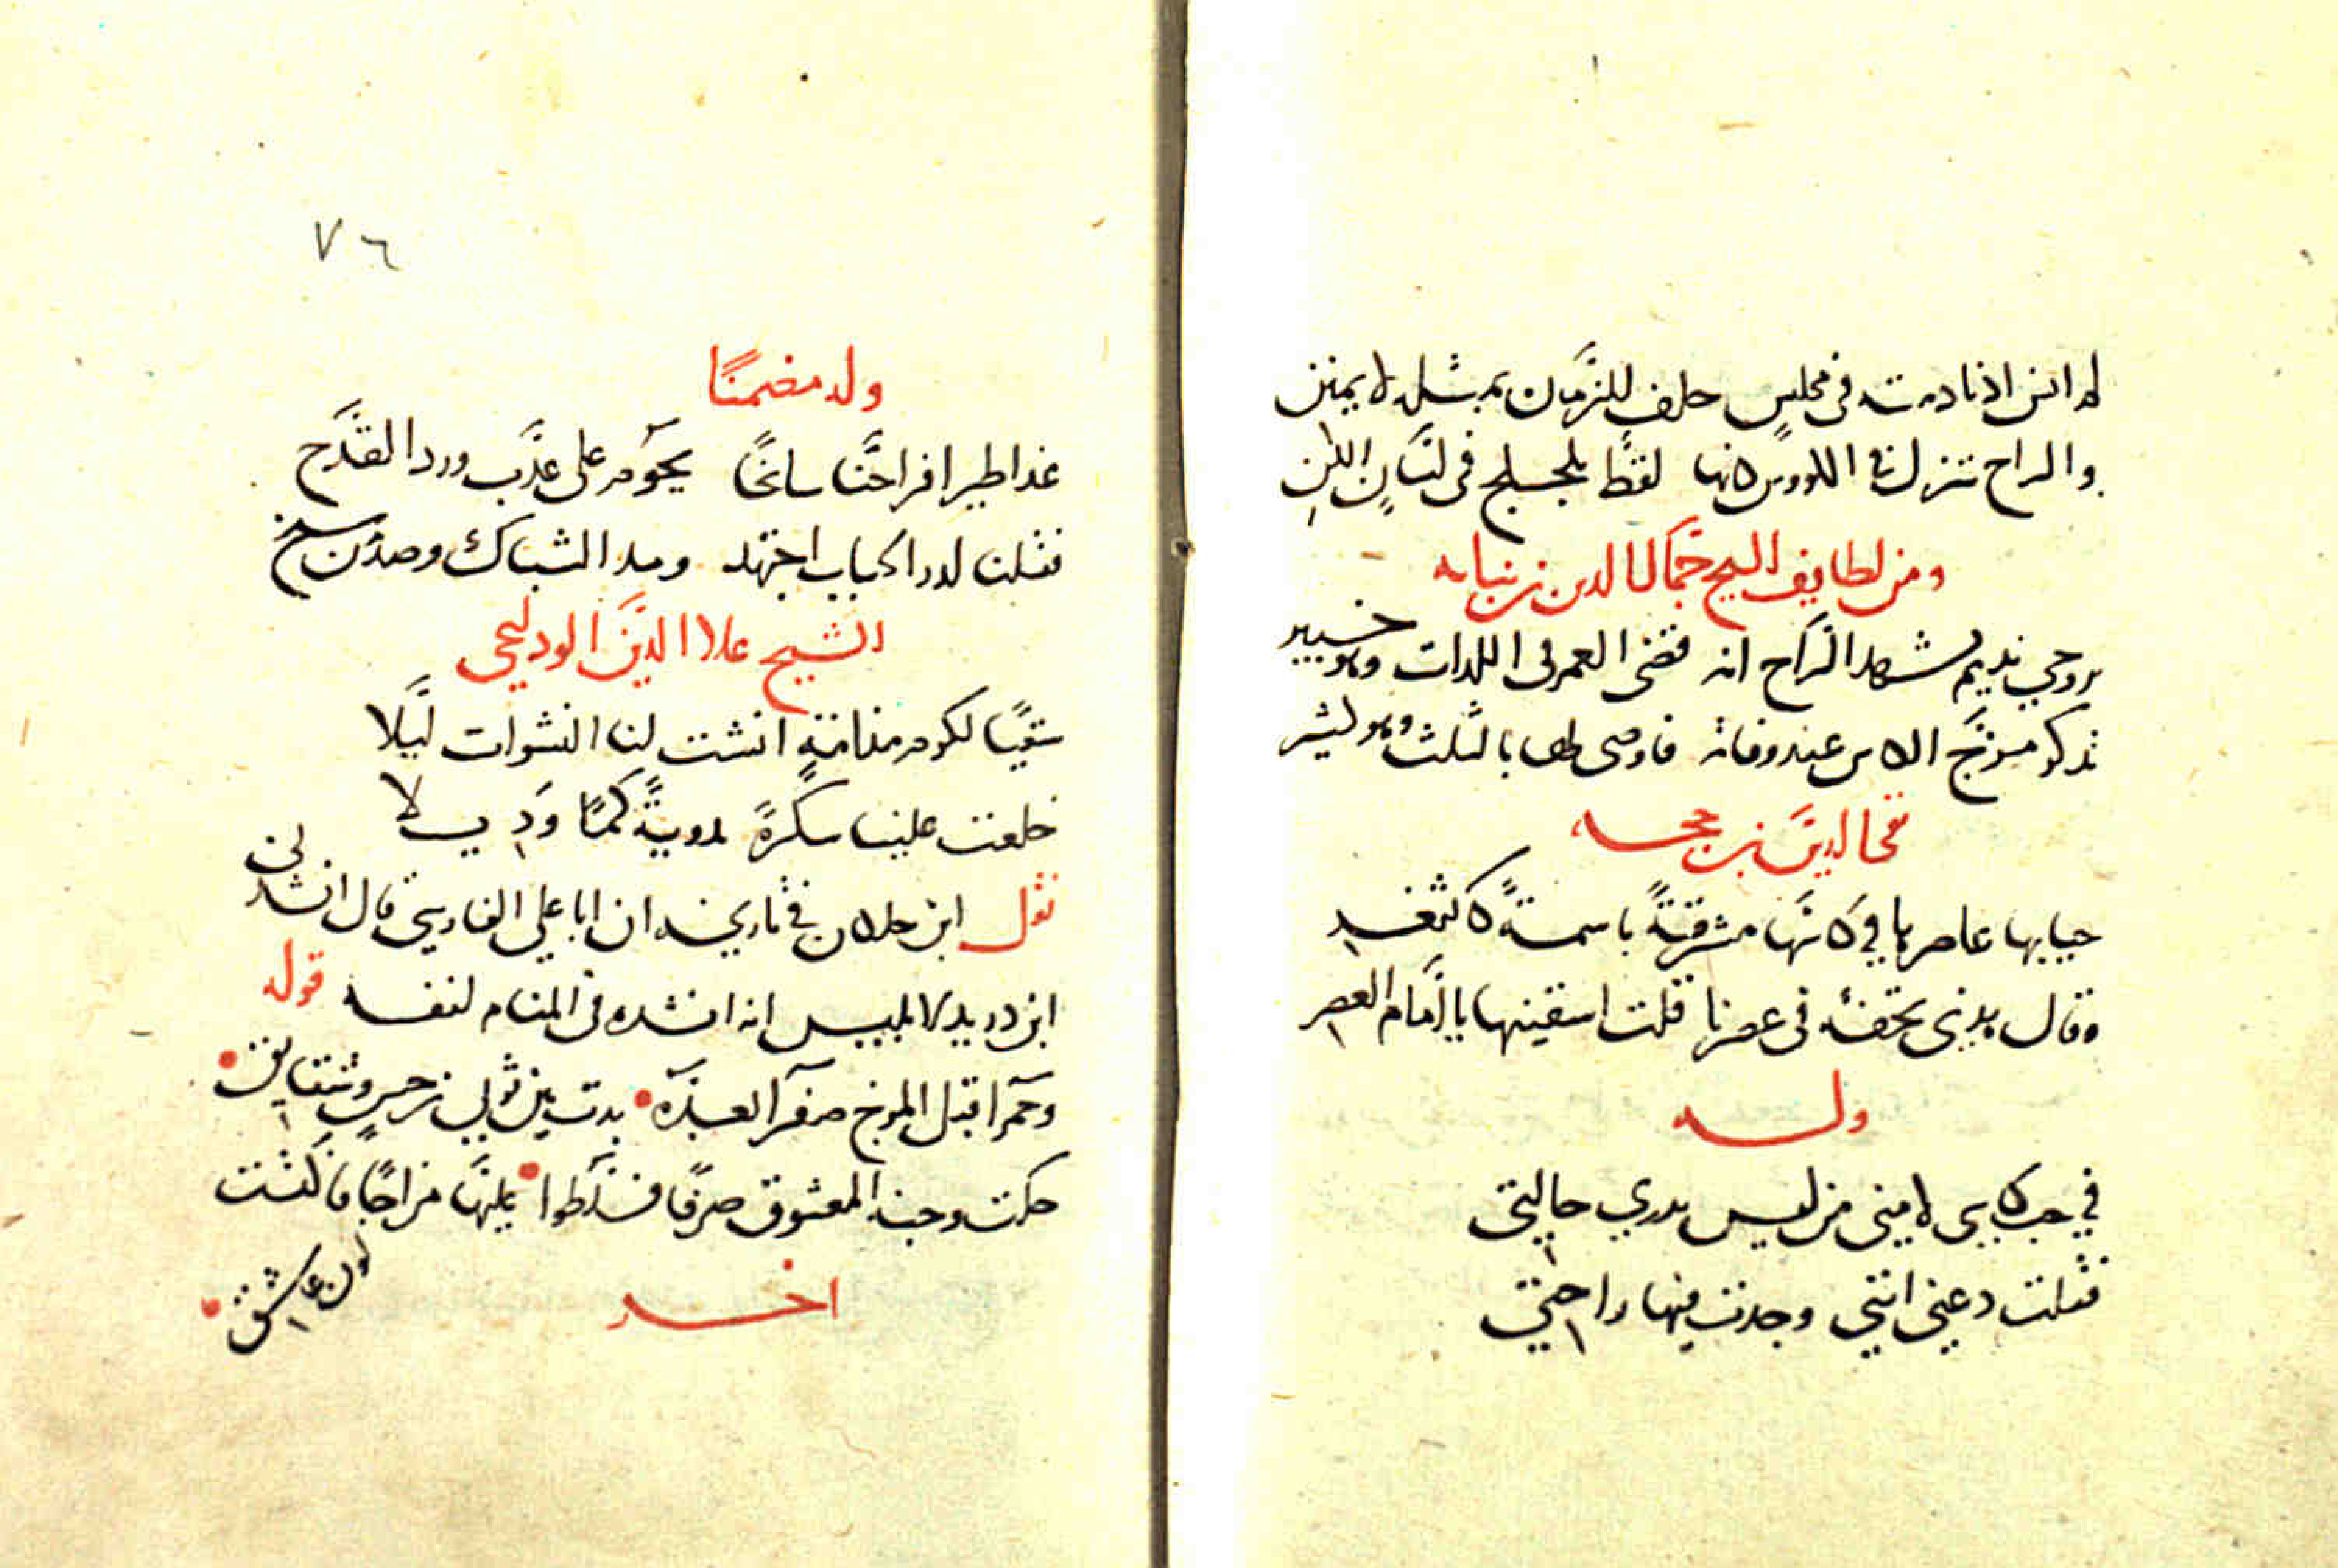 له انس اذ نادمته في مجلس حلف الزمان بمثله لا يمنن
والراح تنزل في الكووس كانها لفظ تلجلج في لسان الكن
ومن لطايف الشيخ جمال الدين بن نباته
بروحي نديم يشهد الراح انه قضى العمر في اللذات وهو خبير
تذكر مزج الكاس عند وفاته فاوصى لها بالثلث وهو كثير
تقى الدين بن حجه
حبابها عاصرها في كانها مشرقة باسمة كالثغر
وقال هذي تحفة في عصرنا قلت اسقنيها يا امام العصر
وله
في حب كاسي لامني من ليس يدري حالتي
فقلت دعني انني وجدت فيها راحتي
٧٦
وله مضمنا
غدا طير افراحنا سانحا يحوم على عذب ورد القدح
فقلنا لدر الحباب اجتهد ومد الشباك وصد من سنح
الشيخ علا الدين الوداعي
سقيا لكرم مدامة انشت لنا النشوات ليلا
خلعت علينا سكرة بدوية كما وذيلا
نقل ابن خلكان في تاريخه ان ابا علي الفارسي قال انشدني
ابن دريد لابليس انه انشده في المنام لنفسه قوله
وحمرا قبل المزج صفرا بعده بدت بين ثوبي نرجس وشقايق
حكت وجنة المعشوق صرفا فسلطوا عليها مزاجا فاكتست
لون عاشق
اخر